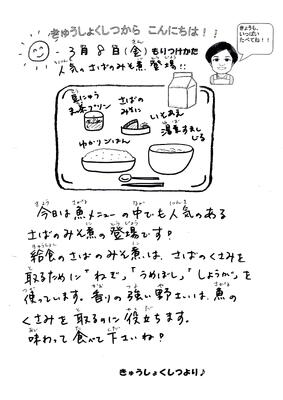 きゅうしょくしつから こんにちは！！
きょうも、
いっぱい
たべてね！！
3月8日(金) もりつけかた
人気のさばのみそ煮登場！！
豆にゅう
抹茶プリン
さばの
みそに
いとあえ
沢煮すまし
じる
ゆかりごはん
今日は魚メニューの中でも人気のある
さばのみそ煮の登場です？
給食のさばのみそ煮は、さばのくさみを
取るために「ねぎ」「うめぼし」「しょうが」を
使っています。香りの強い野さいは、魚の
くさみを取るのに役立ちます。
味わって食べて下さいね？
きゅうしょくしつより♪